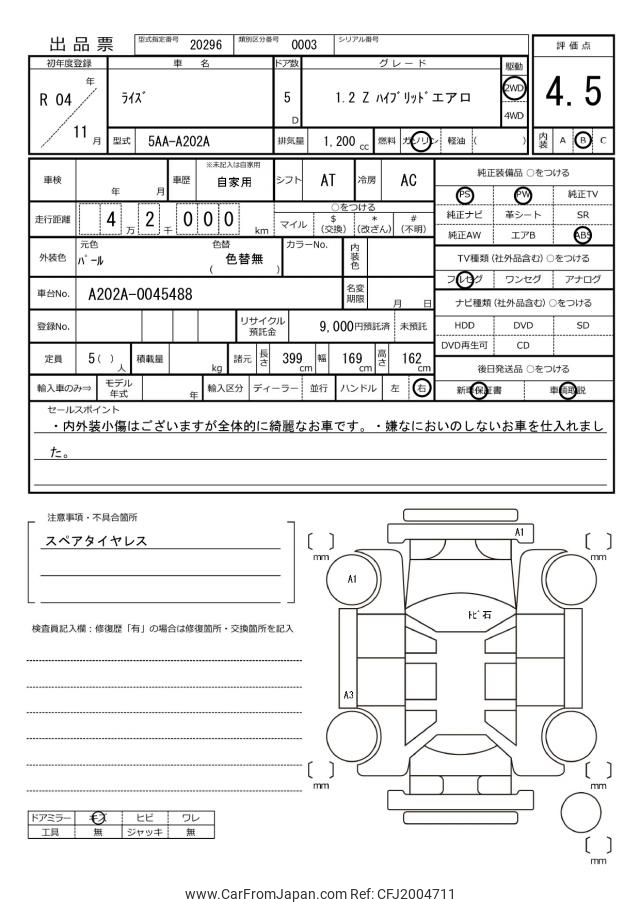 出品票
型式指定番号 20296 類別区分番号 0003 シリアル番号
評価点
4.5
内装 A B C
初年度登録 車名 ドア数 グレード 駆動
R 04 年 11 月
ﾗｲｽﾞ
5 D
1.2 Z ﾊｲﾌﾞﾘｯﾄﾞエアロ
2WD
4WD
型式 5AA-A202A 排気量 1,200 cc 燃料 ガソリン 軽油 ( )
車検 年 月 車歴 ※未記入は自家用 自家用 シフト AT 冷房 AC
走行距離 4 万 2 千 0 0 0 km
○をつける
マイル $ (交換) * (改ざん) # (不明)
外装色 元色 ﾊﾟｰﾙ 色替 ( 色替無 ) カラーNo. 内装色
車台No. A202A-0045488 名変期限 月 日
登録No. リサイクル預託金 9,000円預託済 未預託
定員 5 ( ) 人 積載量 kg 諸元 長さ 399 cm 幅 169 cm 高さ 162 cm
輸入車のみ⇒ モデル年式 年 輸入区分 ディーラー 並行 ハンドル 左 右
純正装備品 ○をつける
PS PW 純正TV
純正ナビ 革シート SR
純正AW エアB ABS
TV種類 (社外品含む) ○をつける
フルセグ ワンセグ アナログ
ナビ種類 (社外品含む) ○をつける
HDD DVD SD
DVD再生可 CD
後日発送品 ○をつける
新車保証書 車輌取説
セールスポイント
・内外装小傷はございますが全体的に綺麗なお車です。・嫌なにおいのしないお車を仕入れまし
た。
注意事項・不具合箇所
スペアタイヤレス
検査員記入欄：修復歴「有」の場合は修復箇所・交換箇所を記入
A1
mm
mm
A1
ﾄﾋﾞ石
A3
mm
mm
mm
ドアミラー キズ ヒビ ワレ
工具 無 ジャッキ 無
www.CarFromJapan.com Ref: CFJ2004711